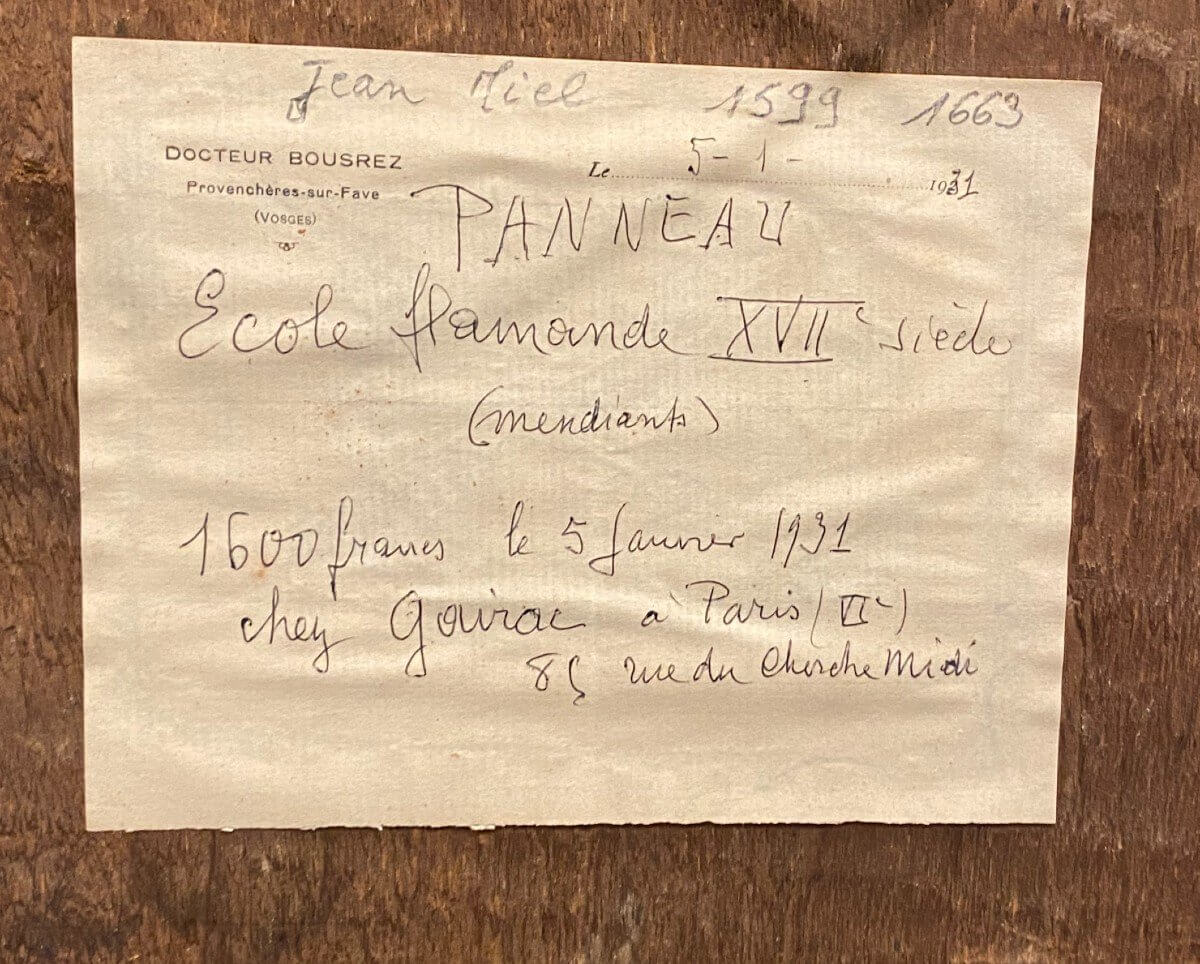 Jean Miel 1599 1663
DOCTEUR BOUSREZ
Provenchères-sur-Fave
(VOSGES)
Le 5-1- 1931
PANNEAU
Ecole flamande XVIIe siècle
(mendiants)
1600 francs le 5 Janvier 1931
chez Gouirac à Paris (VIe)
85 rue du Cherche Midi